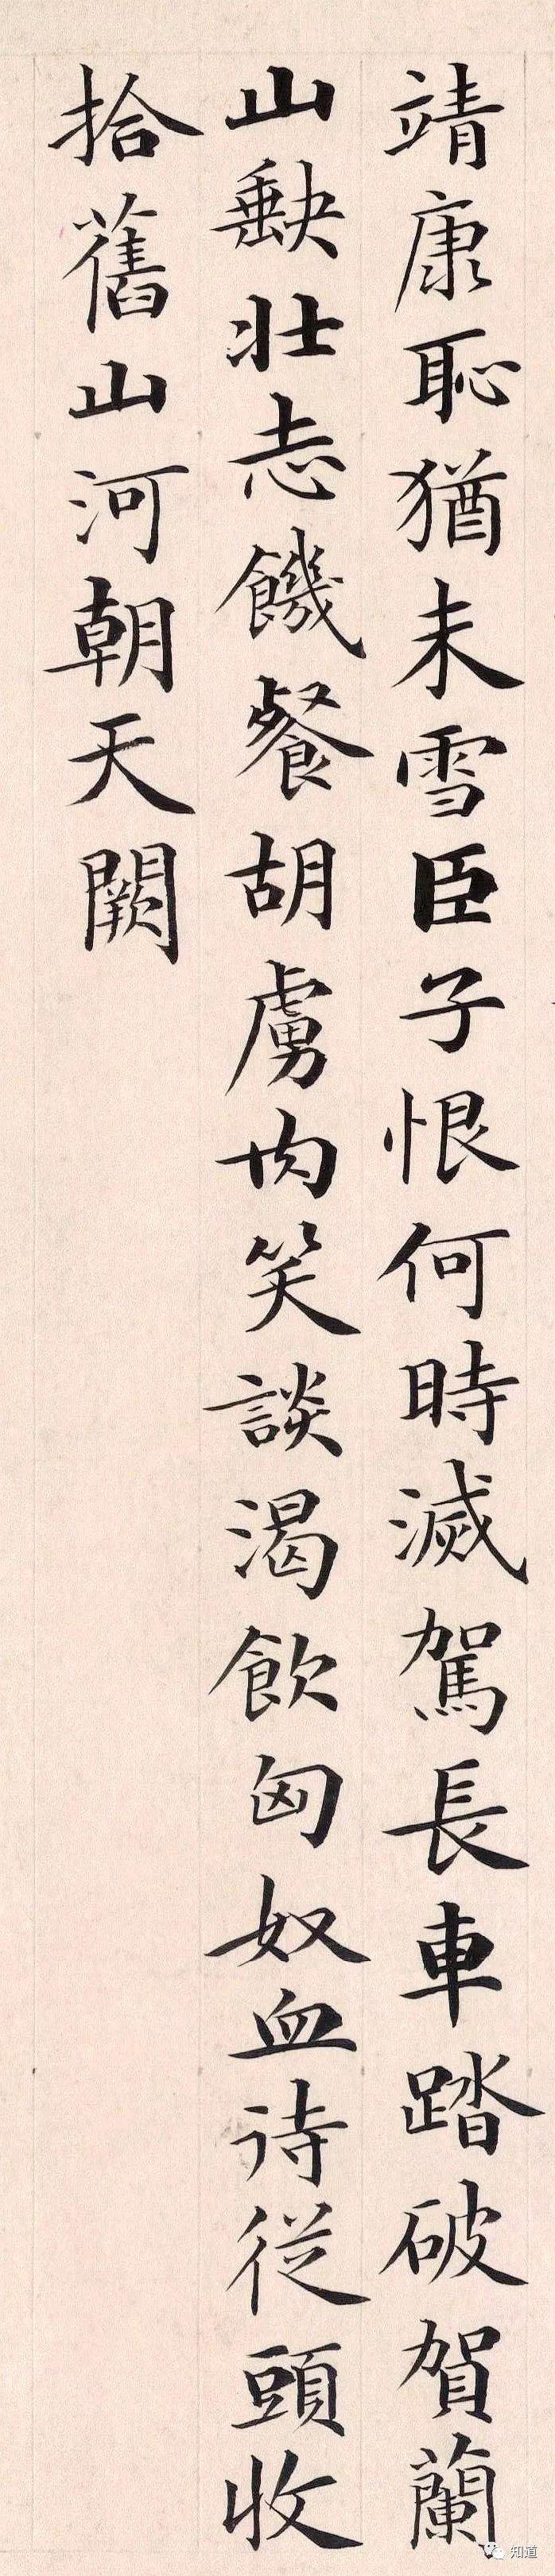 靖康恥猶未雪臣子恨何時滅駕長車踏破賀蘭
山缺壯志饑餐胡虜肉笑談渴飲匈奴血待從頭收
拾舊山河朝天闕
知道